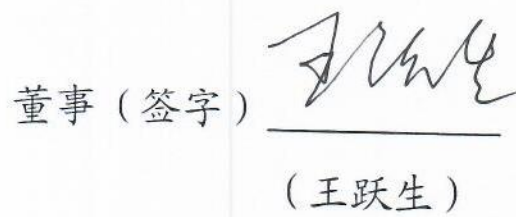 董事（签字）王跃生
（王跃生）